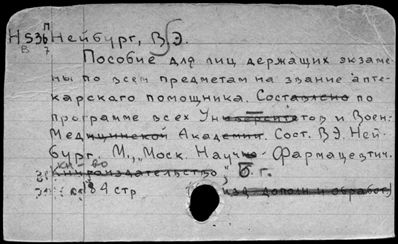 Н 536 п Нейбург, В. Э.
В 7
Пособие для лиц держащих экзаме-
ны по всем предметам на звание апте-
карского помощника. Составлено по
программе всех Университетов и Воен.
Медицинской Академии. Сост. В.Э. Ней-
бург. М., "Моск. Научно-Фармацевтич.
Книгоиздательство", Б. г.
184 стр
изд дополн и обработ